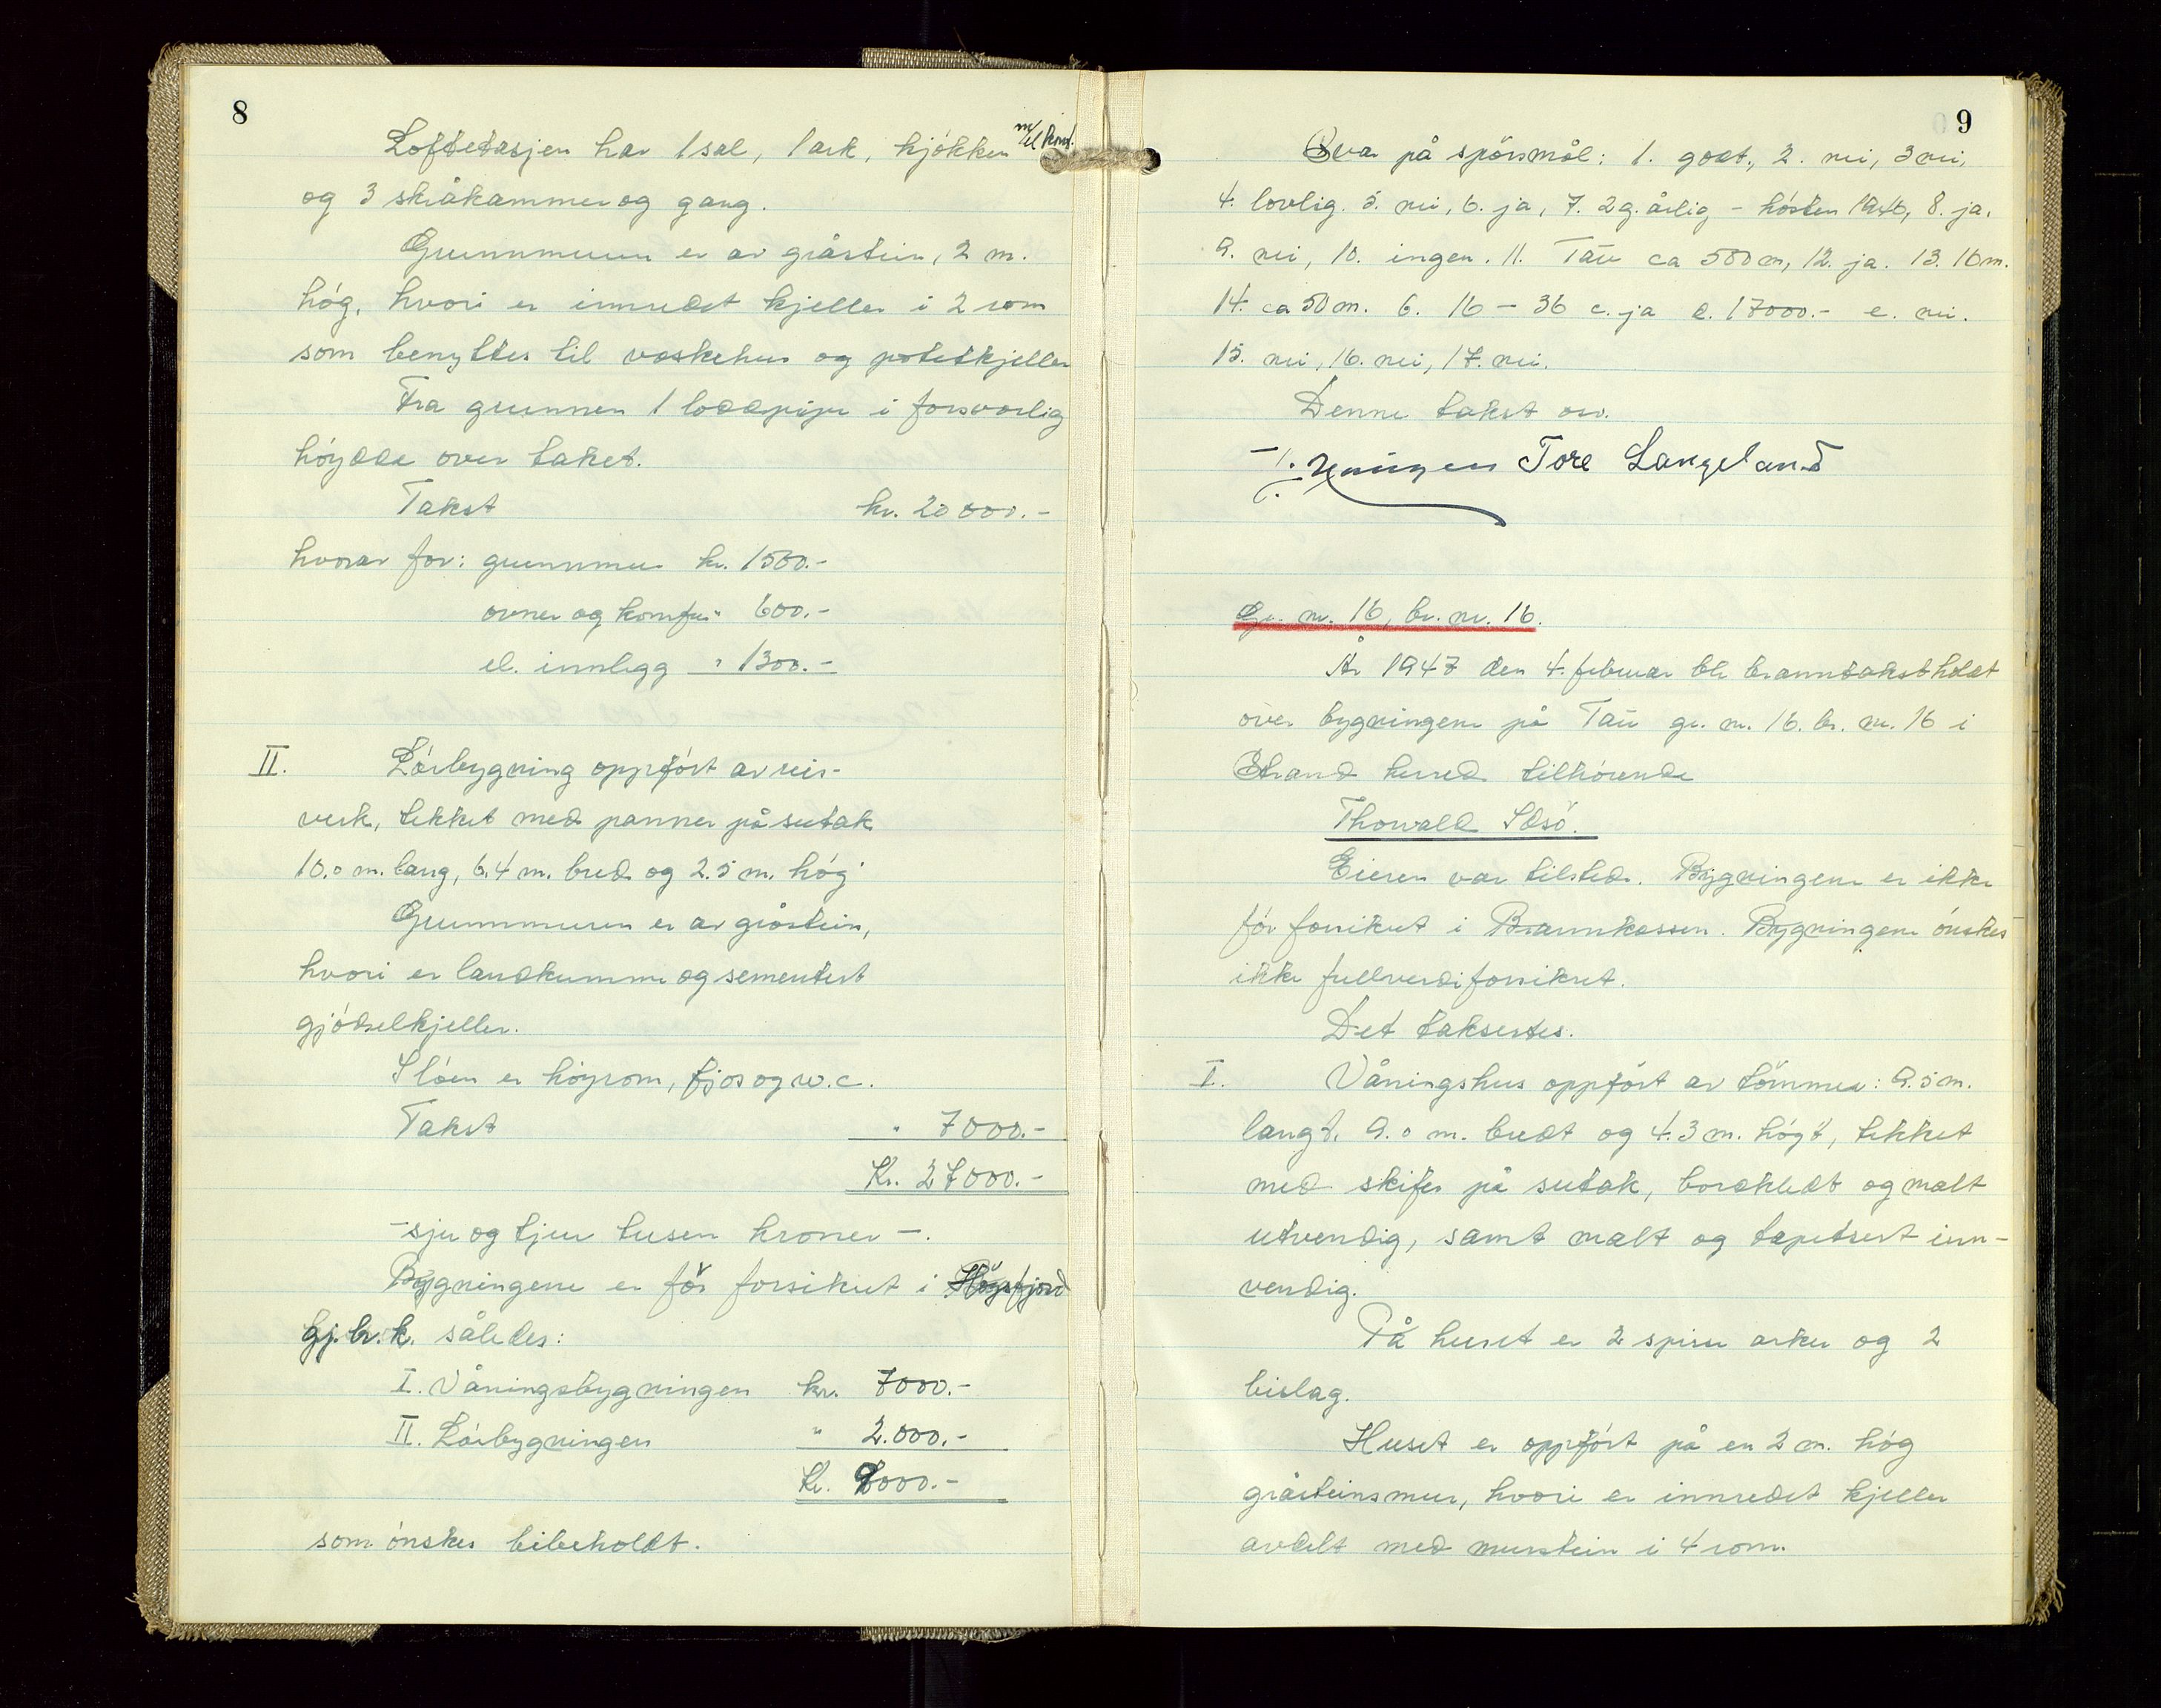 8
Loftetasjen har 1 sal, 1 ark, kjökken m/el komf.
og 3 skråkammer og gang.
Grunnmuren er av gråstein, 2 m.
hög, hvori er innredet kjeller i 2 rom
som benyttes til vaskehus og potetkjeller
Fra grunnen 1 loddpipe i forsvarlig
höyde over taket.
Takst kr. 20 000.-
hvorav for: grunnmur kr. 1500.-
ovner og komfur " 600.-
el. innlegg " 1300.-
II. Löebygning oppfört av reis-
verk, tekket med panner på sutak
10.0 m. lang, 6.4 m. bred og 2.5 m. hög
Grunnmuren er av gråstein,
hvori er landkumme og sementert
gjödselkjeller.
I löen er höyrom, fjös og w.c.
Takst " 7000.-
Kr. 27000.-
-sju og tjue tusen kroner -.
Bygningene er för forsikret i Högsfjord
gj.br.k. således:
I. Våningsbygningen kr. 7000.-
II. Löebygningen " 2.000.-
Kr. 9000.-
som önskes bibeholdt.
9
Svar på spörsmål: 1. godt, 2. nei, 3 nei,
4. lovlig. 5. nei, 6. ja, 7. 2 g. årlig - hösten 1946, 8. ja.
9. nei, 10. ingen. 11. Tau ca 500 m, 12. ja. 13. 10 m.
14. ca 50 m. 6. 16 - 36 c. ja d. 17000.- e. nei.
15. nei, 16. nei, 17. nei.
Denne takst osv.
Tore Langeland
Gr. nr. 16, br. nr. 16.
År 1947 den 4. februar ble branntakst holdt
over bygningene på Tau gr. nr. 16. br. nr. 16 i
Strand herred tilhörende
Thorvald Idsö.
Eieren var tilstede. Bygningene er ikke
för forsikret i Brannkassen. Bygningene önskes
ikke fullverdiforsikret.
Det taksertes.
I. Våningshus oppfört av tömmer: 9.5 m.
langt, 9.0 m. bredt og 4.3 m. högt, tekket
med skifer på sutak, bordkledt og malt
utvendig, samt malt og tapetsert inn-
vendig.
På huset er 2 spisse arker og 2
bislag.
Huset er oppfört på en 2 m. hög
gråsteinsmur, hvori er innredet kjeller
avdelt med murstein i 4 rom.